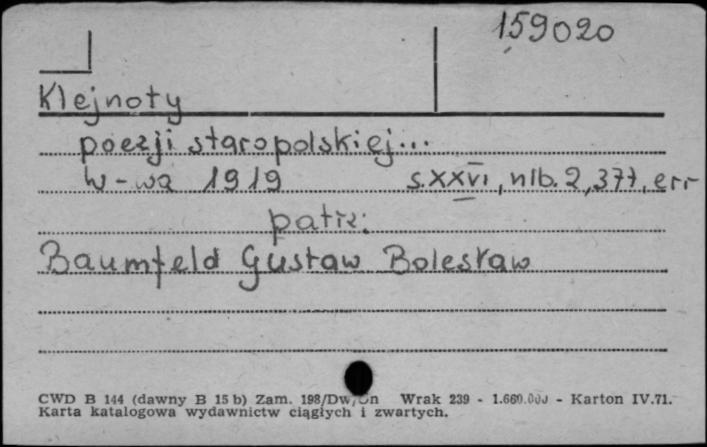 159020
Klejnoty
poezji staropolskiej...
W-wa 1919 s. XXVI, nlb. 2, 377, err
patrz:
Baumfeld Gustaw Bolesław
CWD B 144 (dawny B 15 b) Zam. 198/Dw/ Wrak 239 - 1.660.000 - Karton IV.71.
Karta katalogowa wydawnictw ciągłych i zwartych.